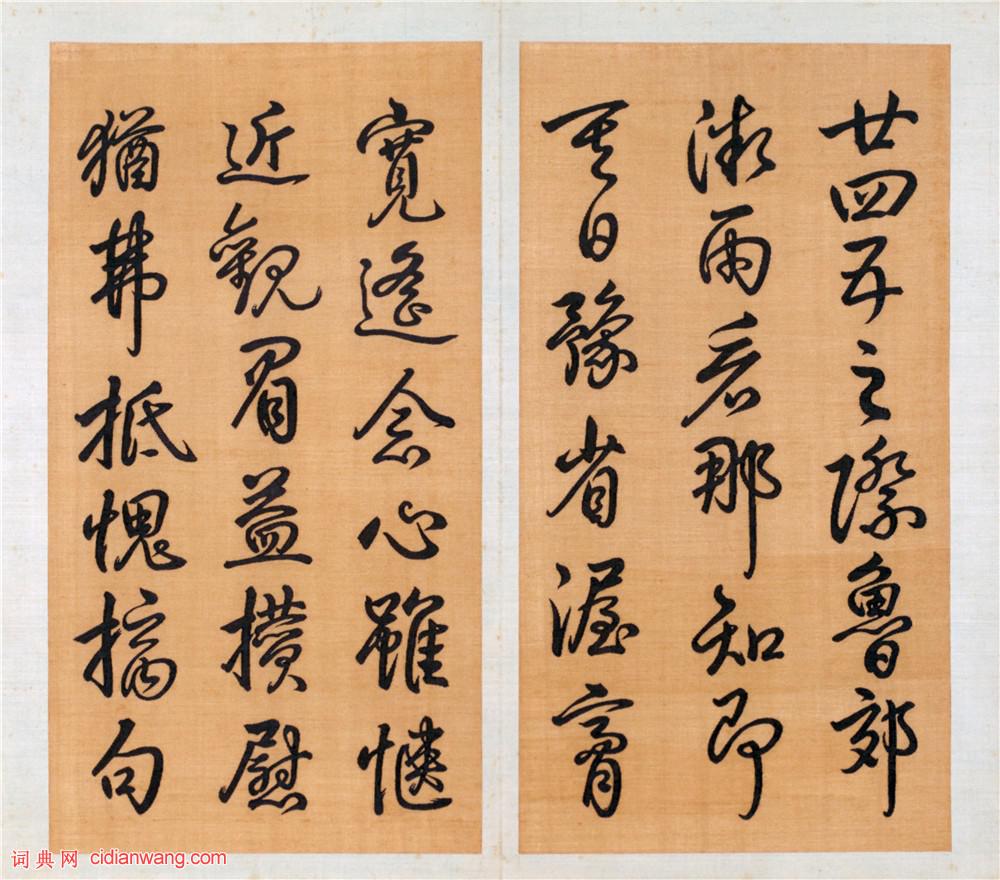 廿四五之際魯郊
微雨看那知即
其日豫省渥膏
寬遙念心雖愜
近觀眉益攢慰
猶弗抵愧摛句
词典网 cidianwang.com